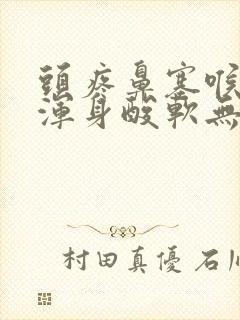 頭疼鼻塞喉
渾身酸軟無
村田真優 石川